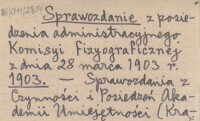 Sprawozdanie z posie-
dzenia administracyjnego
Komisyi Fizyograficznej
z dnia 28 marca 1903 r.
1903. — Sprawozdania z
Czynności i Posiedzeń Aka-
demii Umiejętności (Kra-